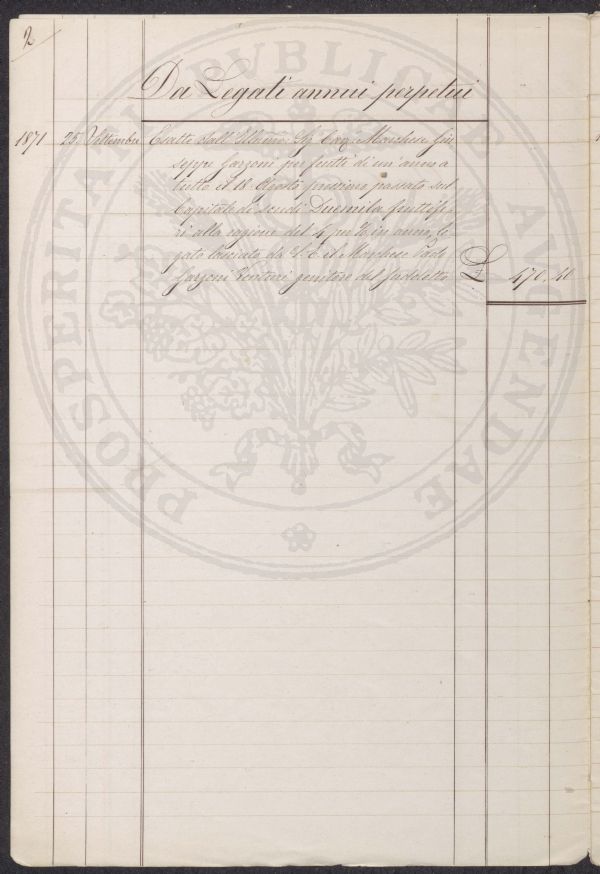 2
Da Legati annui perpetui
1871 25 Settembre Esatte dall'Illmo: Sig Cav: Marchese Giu
seppe Garzoni per frutti di un'anno a
tutto il 18 Agosto prossimo passato sul
Capitale di scudi Duemila fruttife=
ri alla ragione del 4 p% in anno, le
gato lasciato da S. E. il Marchese Paolo
Garzoni Venturi genitore del sudetto £ 470. 40
PROSPERITATI PUBLICAE AUGENDAE